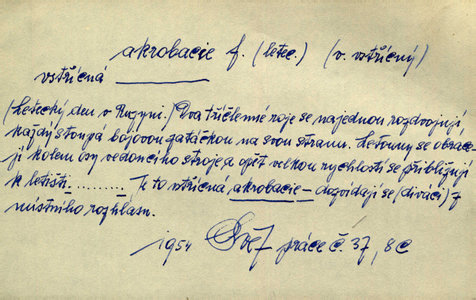 akrobacie f. (letec.) (v. vstřícný)
vstřícná
(Letecký den v Ruzyni.) Dva tříčlenné roje se najednou rozdvojují
každý stoupá bojovou zatáčkou na svou stranu. Letouny se obrace-
jí kolem osy vedoucího stroje a opět velkou rychlostí se přibližují
k letišti ......... Je to vstřícná akrobacie – dozvídají se (diváci) z
místního rozhlasu.
1954 Svět práce č. 37, 8C